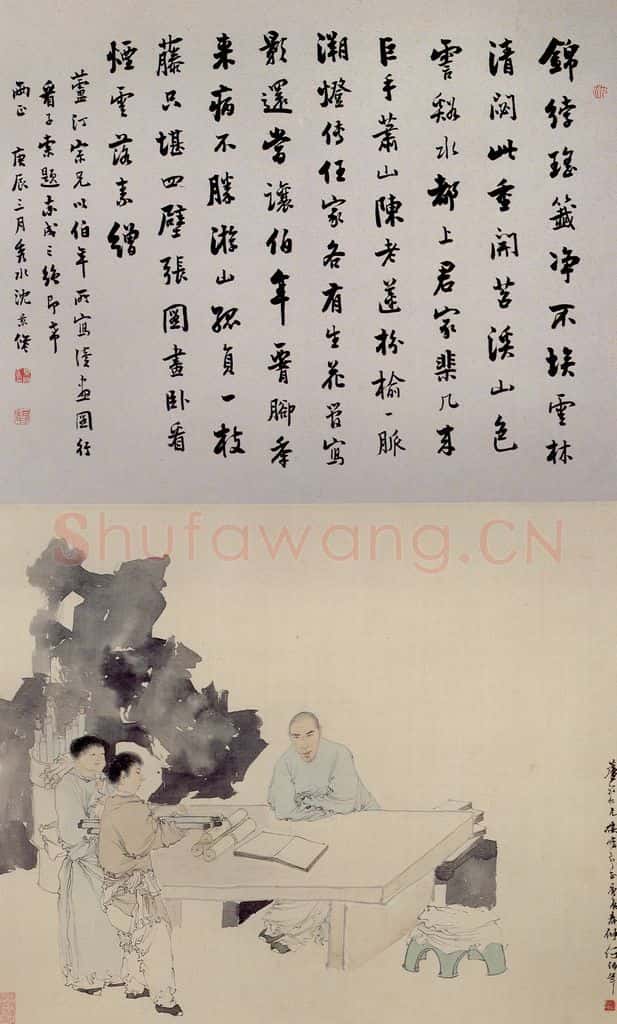 錦綍瑤籤净不埃雲林
清閟此重開苕溪山色
霅谿水都上君家棐几來
巨手蕭山陳老蓮枌榆一脈
溯燈傳任家各有生花管寫
影還當讓伯年腳年
來病不勝游山孤負一枝
藤只堪四壁張圖畫臥看
煙雲落素繒
蘆汀宗兄以伯年所寫讀畫圖行
看子索題成三絕即
兩正 庚辰三月秀水沈景修
Shufawang.CN
蘆汀兄正庚辰春仲任伯年